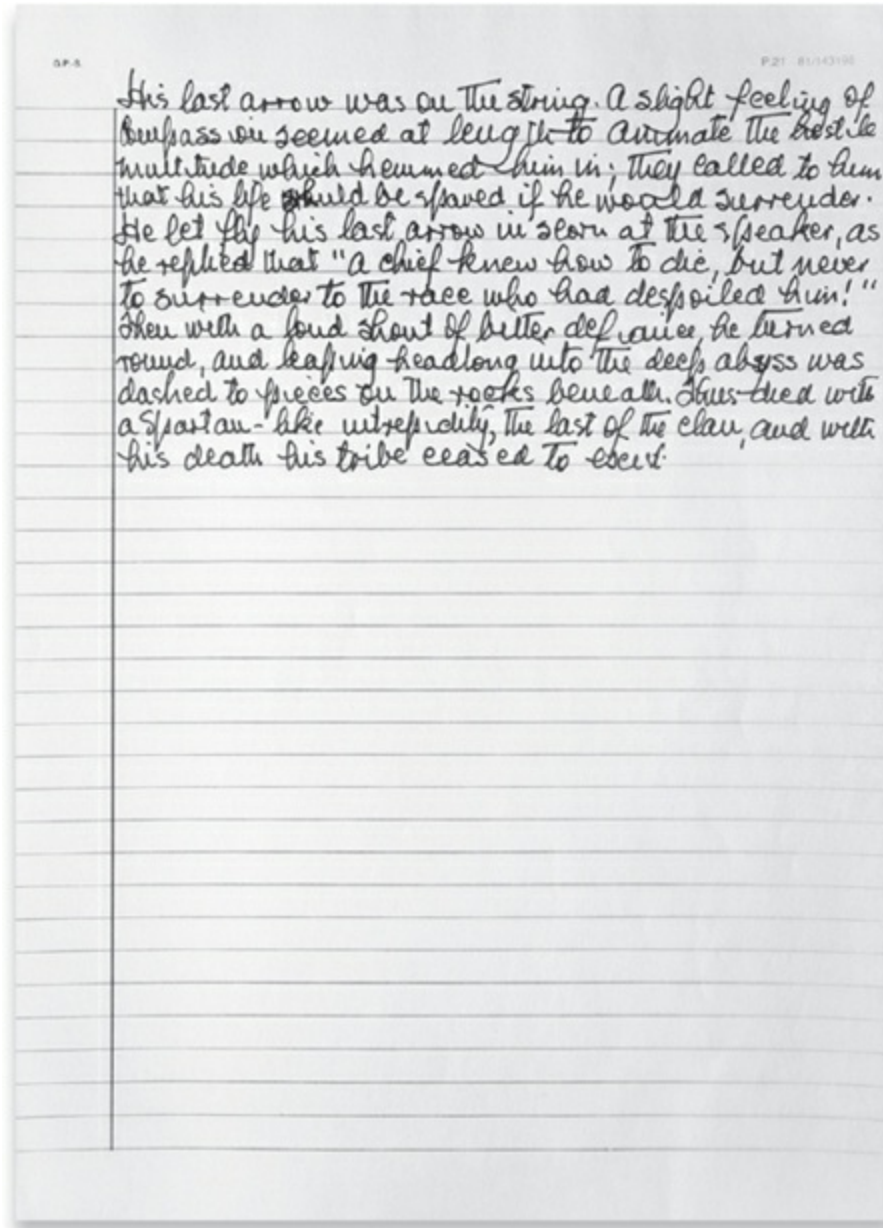 G.P.-S. P.21 81/143196
His last arrow was on the string. A slight feeling of
Compassion seemed at length to animate the hostile
multitude which hemmed him in; they called to him
that his life should be spared if he would surrender.
He let fly his last arrow in scorn at the speaker, as
he replied that "a chief knew how to die, but never
to surrender to the race who had despoiled him!"
Then with a loud shout of bitter defiance, he turned
round, and leaping headlong into the deep abyss was
dashed to pieces on the rocks beneath. Thus died with
a Spartan-like intrepidity, the last of the clan, and with
his death his tribe ceased to exist.